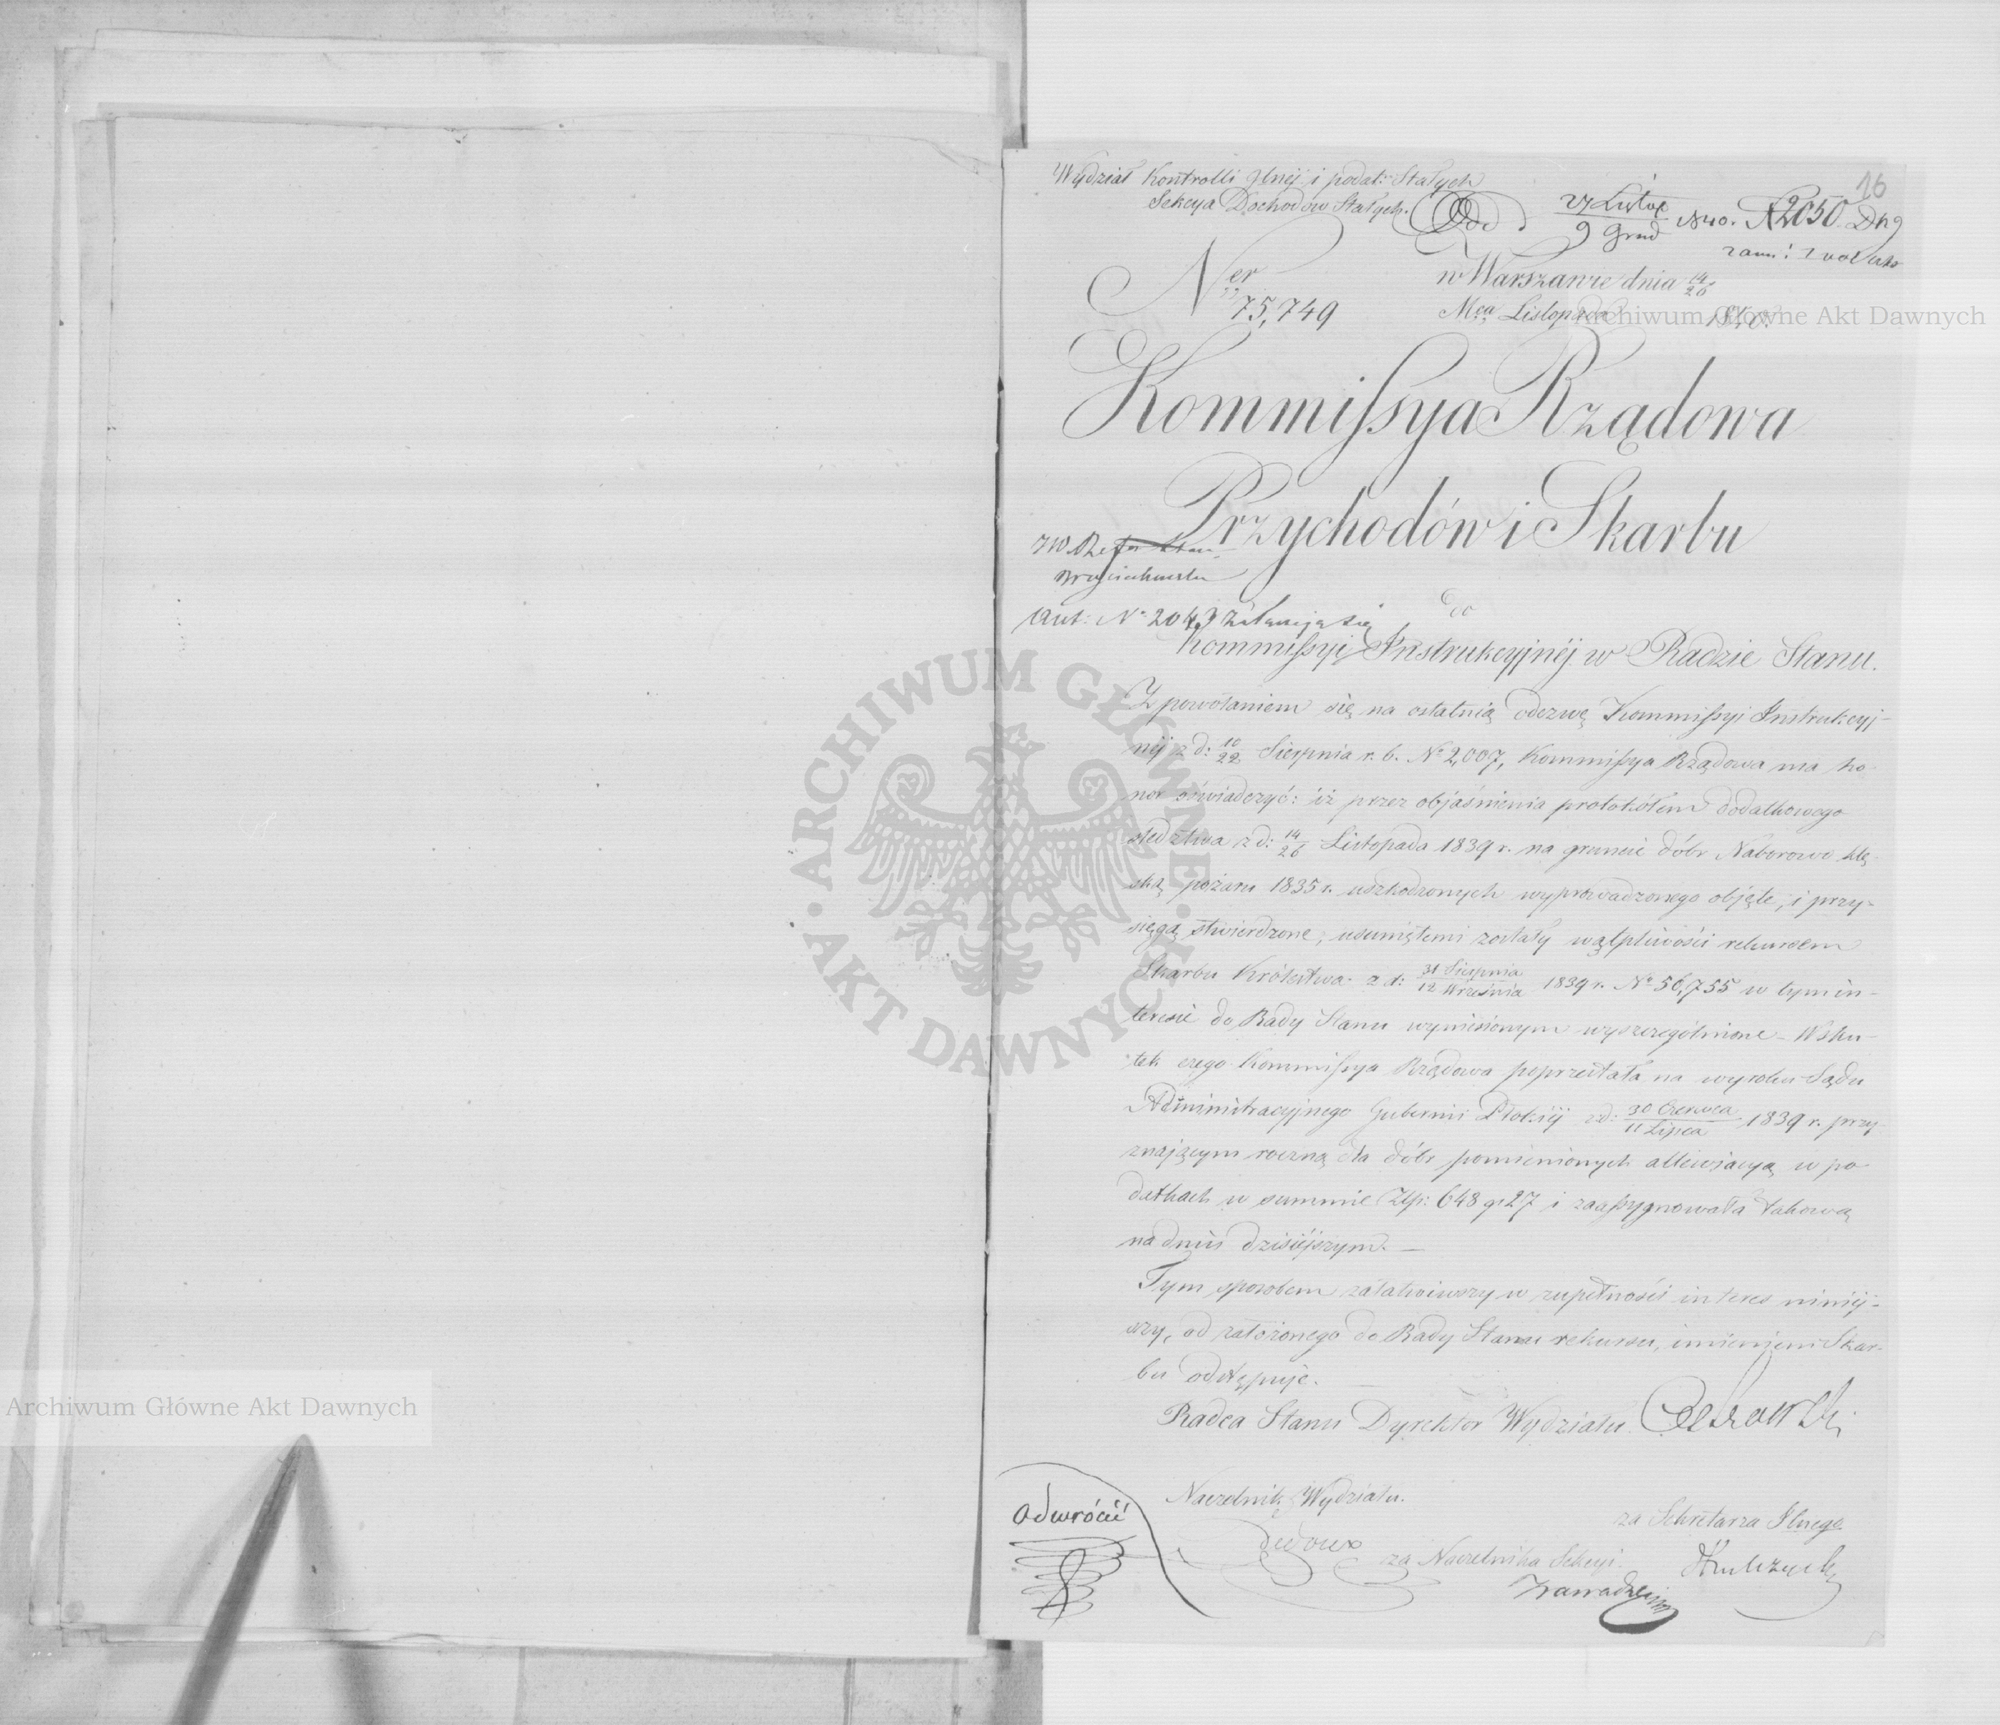 16
Wydział Kontrolli Głnéj i podat: Stałych
Sekcya Dochodów Stałych.
Odd
27 Listop
9 Grud 1840. N 2050 Dkg
Ner 75,749
w Warszawie dnia 14/26
Mca Listopada 1840.
Kommissya Rządowa
Przychodów i Skarbu
JW Refer Stanu
Wojciechowski
Ant: No 2043 załącza się
do
Kommissyi Instrukcyjnéj w Radzie Stanu.
Z powołaniem się na ostatnią odezwę Kommissyi Instrukcyj-
néj z d: 10/22 Sierpnia r. b. No 2,007, Kommissya Rządowa ma ho-
nor oświadczyć: iż przez objaśnienia protokółem dodatkowego
śledztwa z d: 14/26 Listopada 1839 r. na gruncie dóbr Naborowo klę-
ską pożaru 1835 r. uszkodzonych wyprowadzonego objęte, i przy-
sięgą stwierdzone, usuniętemi zostały wątpliwości rekursem
Skarbu Królestwa z d: 31 Sierpnia / 12 Września 1839 r. No 56,755 w tym in-
teresie do Rady Stanu wyniesionym wyszczególnione – Wsku-
tek czego Kommissya Rządowa poprzestała na wyroku Sądu
Administracyjnego Gubernii Płockiéj z d: 30 Czerwca / 11 Lipca 1839 r. przy-
znającym roczną dla dóbr pomienionych allewiacyą w po-
datkach w summie Złp: 648 gr 27 i zaassygnowała takową
na dniu dzisiéjszym. –
Tym sposobem załatwiwszy w zupełności interes niniéj-
szy, od założonego do Rady Stanu rekursu, imieniem Skar-
bu odstępuje.
Radca Stanu Dyrektor Wydziału
Naczelnik Wydziału.
za Sekretarza Głnego
odwrócić
za Naczelnika Sekcyi.
Archiwum Główne Akt Dawnych
Archiwum Główne Akt Dawnych
ARCHIWUM GŁÓWNE · AKT DAWNYCH ·